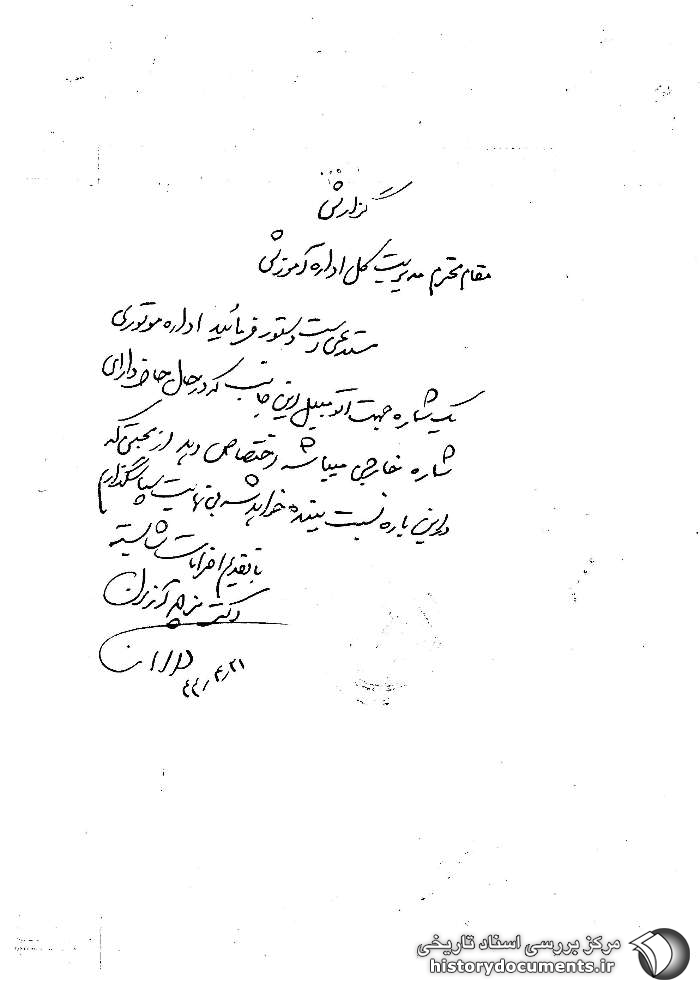 گزارش
مقام محترم مدیریت کل اداره آموزش
مستدعی است دستور فرمائید اداره موتوری
یک شماره جهت اتومبیل این جانب که در حال حاضر دارای
شماره خارجی میباشد اختصاص دهد از محبتی که
در این باره نسبت ببنده خواهد شد بی نهایت سپاسگذارم
با تقدیم احترامات شایسته
دکتر
۴۴/۴/۲۱
مرکز بررسی اسناد تاریخی
historydocuments.ir